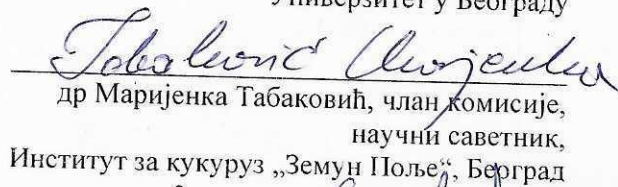 Универзитет у Београду
Tabaković Marijenka
др Маријенка Табаковић, члан комисије,
научни саветник,
Институт за кукуруз „Земун Поље“, Берград